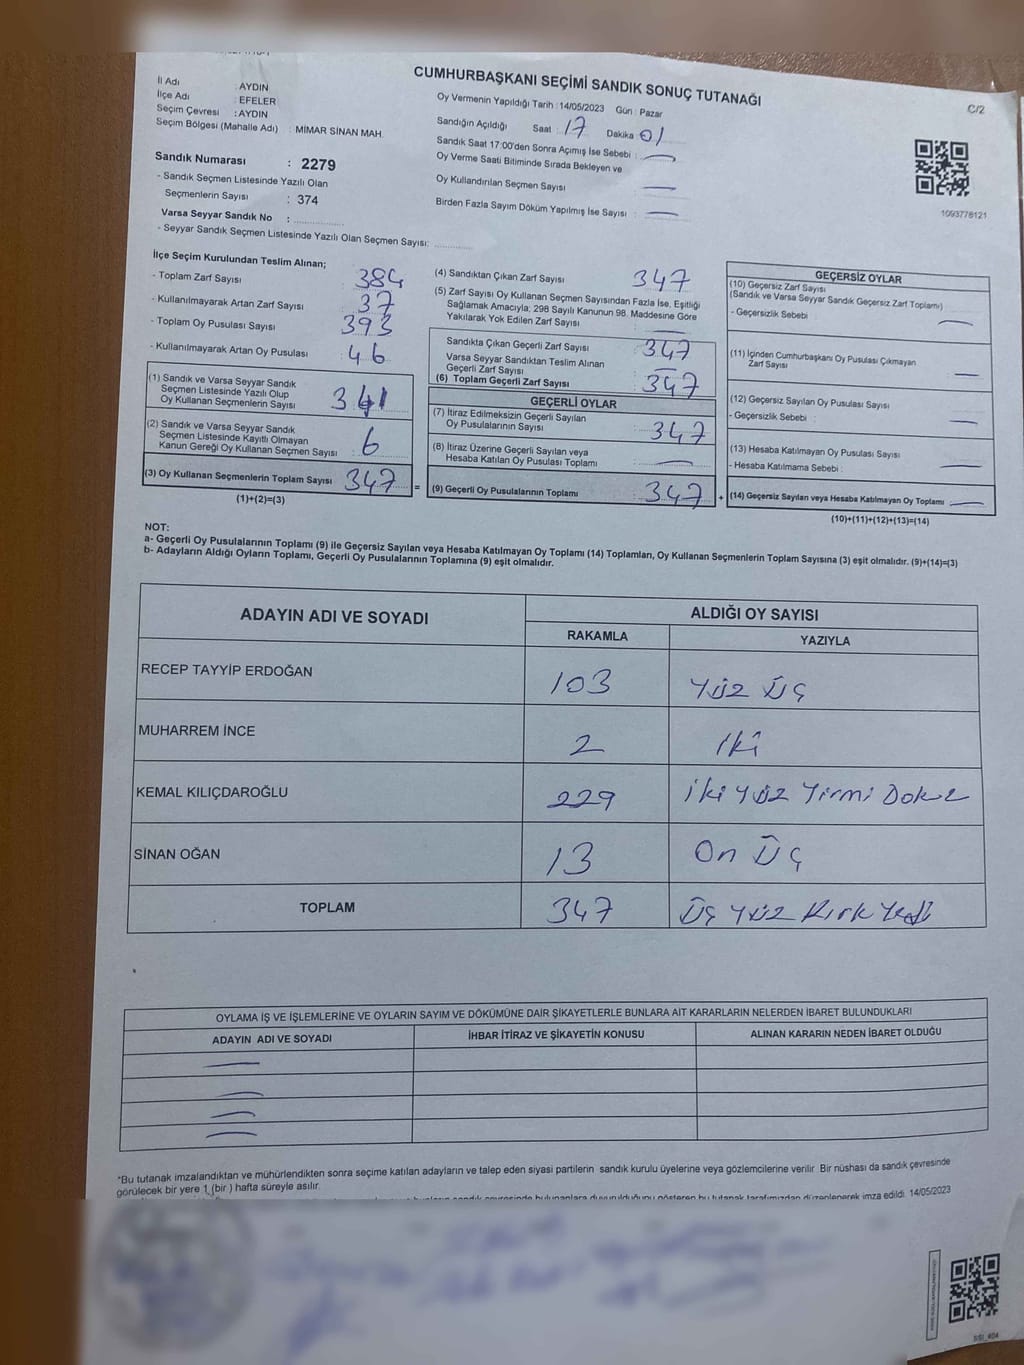 CUMHURBAŞKANI SEÇİMİ SANDIK SONUÇ TUTANAĞI
C/2
İl Adı : AYDIN
İlçe Adı : EFELER
Seçim Çevresi : AYDIN
Seçim Bölgesi (Mahalle Adı) : MİMAR SİNAN MAH.
Sandık Numarası : 2279
- Sandık Seçmen Listesinde Yazılı Olan
Seçmenlerin Sayısı : 374
Varsa Seyyar Sandık No :
- Seyyar Sandık Seçmen Listesinde Yazılı Olan Seçmen Sayısı:
Oy Vermenin Yapıldığı Tarih : 14/05/2023 Gün : Pazar
Sandığın Açıldığı Saat : 17 Dakika : 01
Sandık Saat 17:00'den Sonra Açımış İse Sebebi : —
Oy Verme Saati Bitiminde Sırada Bekleyen ve
Oy Kullandırılan Seçmen Sayısı —
Birden Fazla Sayım Döküm Yapılmış İse Sayısı : —
1093778121
İlçe Seçim Kurulundan Teslim Alınan;
- Toplam Zarf Sayısı : 384
- Kullanılmayarak Artan Zarf Sayısı : 37
- Toplam Oy Pusulası Sayısı : 393
- Kullanılmayarak Artan Oy Pusulası : 46
(1) Sandık ve Varsa Seyyar Sandık
Seçmen Listesinde Yazılı Olup
Oy Kullanan Seçmenlerin Sayısı : 341
(2) Sandık ve Varsa Seyyar Sandık
Seçmen Listesinde Kayıtlı Olmayan
Kanun Gereği Oy Kullanan Seçmen Sayısı : 6
(3) Oy Kullanan Seçmenlerin Toplam Sayısı : 347
(1)+(2)=(3)
=
(4) Sandıktan Çıkan Zarf Sayısı : 347
(5) Zarf Sayısı Oy Kullanan Seçmen Sayısından Fazla İse, Eşitliği
Sağlamak Amacıyla; 298 Sayılı Kanunun 98. Maddesine Göre
Yakılarak Yok Edilen Zarf Sayısı : —
Sandıkta Çıkan Geçerli Zarf Sayısı : 347
Varsa Seyyar Sandıktan Teslim Alınan
Geçerli Zarf Sayısı : —
(6) Toplam Geçerli Zarf Sayısı : 347
GEÇERLİ OYLAR
(7) İtiraz Edilmeksizin Geçerli Sayılan
Oy Pusulalarının Sayısı : 347
(8) İtiraz Üzerine Geçerli Sayılan veya
Hesaba Katılan Oy Pusulası Toplamı : —
(9) Geçerli Oy Pusulalarının Toplamı : 347
+
GEÇERSİZ OYLAR
(10) Geçersiz Zarf Sayısı
(Sandık ve Varsa Seyyar Sandık Geçersiz Zarf Toplamı)
- Geçersizlik Sebebi : —
(11) İçinden Cumhurbaşkanı Oy Pusulası Çıkmayan
Zarf Sayısı : —
(12) Geçersiz Sayılan Oy Pusulası Sayısı
- Geçersizlik Sebebi : —
(13) Hesaba Katılmayan Oy Pusulası Sayısı
- Hesaba Katılmama Sebebi : —
(14) Geçersiz Sayılan veya Hesaba Katılmayan Oy Toplamı : —
(10)+(11)+(12)+(13)=(14)
NOT:
a- Geçerli Oy Pusulalarının Toplamı (9) ile Geçersiz Sayılan veya Hesaba Katılmayan Oy Toplamı (14) Toplamları, Oy Kullanan Seçmenlerin Toplam Sayısına (3) eşit olmalıdır. (9)+(14)=(3)
b- Adayların Aldığı Oyların Toplamı, Geçerli Oy Pusulalarının Toplamına (9) eşit olmalıdır.
ADAYIN ADI VE SOYADI ALDIĞI OY SAYISI
RAKAMLA YAZIYLA
RECEP TAYYİP ERDOĞAN 103 Yüz Üç
MUHARREM İNCE 2 İki
KEMAL KILIÇDAROĞLU 229 İki Yüz Yirmi Dokuz
SİNAN OĞAN 13 On Üç
TOPLAM 347 Üç Yüz Kırk Yedi
OYLAMA İŞ VE İŞLEMLERİNE VE OYLARIN SAYIM VE DÖKÜMÜNE DAİR ŞİKAYETLERLE BUNLARA AİT KARARLARIN NELERDEN İBARET BULUNDUKLARI
ADAYIN ADI VE SOYADI İHBAR İTİRAZ VE ŞİKAYETİN KONUSU ALINAN KARARIN NEDEN İBARET OLDUĞU
—
—
—
—
*Bu tutanak imzalandıktan ve mühürlendikten sonra seçime katılan adayların ve talep eden siyasi partilerin sandık kurulu üyelerine veya gözlemcilerine verilir. Bir nüshası da sandık çevresinde
görülecek bir yere 1 (bir) hafta süreyle asılır.
bulunanlara duyurulduğunu gösteren bu tutanak tarafımızdan düzenlenerek imza edildi. 14/05/2023
SSI_404